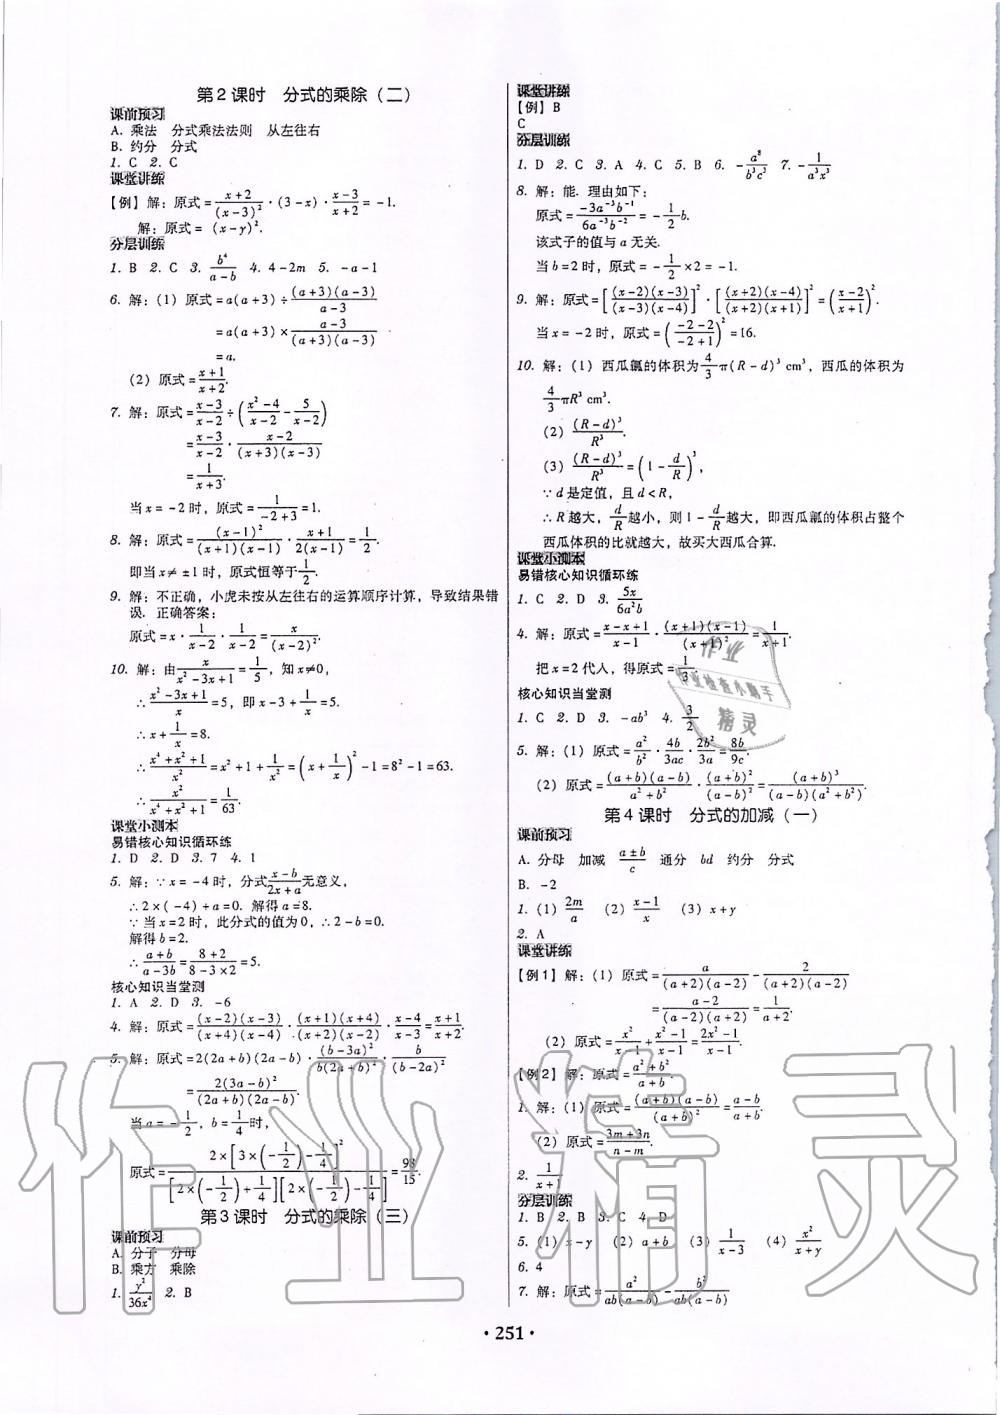 第2课时　分式的乘除（二）
课前预习
A. 乘法　分式乘法法则　从左往右
B. 约分　分式
1. C  2. C
课堂讲练
【例】解：原式=\frac{x+2}{(x-3)^2}·(3-x)·\frac{x-3}{x+2}=-1.
解：原式=(x-y)^2.
分层训练
1. B  2. C  3. \frac{b^4}{a-b}  4. 4-2m  5. -a-1
6. 解：(1) 原式=a(a+3)÷\frac{(a+3)(a-3)}{a-3}
=a(a+3)×\frac{a-3}{(a+3)(a-3)}
=a.
(2) 原式=\frac{x+1}{x+2}.
7. 解：原式=\frac{x-3}{x-2}÷(\frac{x^2-4}{x-2}-\frac{5}{x-2})
=\frac{x-3}{x-2}·\frac{x-2}{(x+3)(x-3)}
=\frac{1}{x+3}.
当x=-2时，原式=\frac{1}{-2+3}=1.
8. 解：原式=\frac{(x-1)^2}{(x+1)(x-1)}·\frac{x+1}{2(x-1)}=\frac{1}{2}.
即当x≠±1时，原式恒等于\frac{1}{2}.
9. 解：不正确，小虎未按从左往右的运算顺序计算，导致结果错
误. 正确答案：
原式=x·\frac{1}{x-2}·\frac{1}{x-2}=\frac{x}{(x-2)^2}.
10. 解：由\frac{x}{x^2-3x+1}=\frac{1}{5}，知x≠0，
∴\frac{x^2-3x+1}{x}=5，即x-3+\frac{1}{x}=5.
∴x+\frac{1}{x}=8.
∴\frac{x^4+x^2+1}{x^2}=x^2+1+\frac{1}{x^2}=(x+\frac{1}{x})^2-1=8^2-1=63.
∴\frac{x^2}{x^4+x^2+1}=\frac{1}{63}.
课堂小测本
易错核心知识循环练
1. D  2. D  3. 7  4. 1
5. 解：∵x=-4时，分式\frac{x-b}{2x+a}无意义，
∴2×(-4)+a=0. 解得a=8.
∵当x=2时，此分式的值为0，∴2-b=0.
解得b=2.
∴\frac{a+b}{a-3b}=\frac{8+2}{8-3×2}=5.
核心知识当堂测
1. A  2. D  3. -6
4. 解：原式=\frac{(x-2)(x-3)}{(x+4)(x-4)}·\frac{(x+1)(x+4)}{(x+2)(x-2)}·\frac{x-4}{x-3}=\frac{x+1}{x+2}.
5. 解：原式=2(2a+b)(2a-b)·\frac{(b-3a)^2}{b(2a+b)}·\frac{b}{(b-2a)^2}
=\frac{2(3a-b)^2}{(2a+b)(2a-b)}.
当a=-\frac{1}{2}，b=\frac{1}{4}时，
原式=\frac{2×[3×(-\frac{1}{2})-\frac{1}{4}]^2}{[2×(-\frac{1}{2})+\frac{1}{4}][2×(-\frac{1}{2})-\frac{1}{4}]}=\frac{98}{15}.
第3课时　分式的乘除（三）
课前预习
A. 分子　分母
B. 乘方　乘除
1. \frac{y^2}{36x^4}  2. B
课堂讲练
【例】B
C
分层训练
1. D  2. C  3. A  4. C  5. B  6. -\frac{a^8}{b^3c^3}  7. -\frac{1}{a^3x^3}
8. 解：能. 理由如下：
原式=\frac{-3a^{-3}b^{-1}}{6a^{-3}b^{-2}}=-\frac{1}{2}b.
该式子的值与a无关.
当b=2时，原式=-\frac{1}{2}×2=-1.
9. 解：原式=[\frac{(x-2)(x-3)}{(x-3)(x-4)}]^2·[\frac{(x+2)(x-4)}{(x+2)(x+1)}]^2=(\frac{x-2}{x+1})^2.
当x=-2时，原式=(\frac{-2-2}{-2+1})^2=16.
10. 解：(1) 西瓜瓤的体积为\frac{4}{3}π(R-d)^3 cm^3，西瓜的体积为
\frac{4}{3}πR^3 cm^3.
(2) \frac{(R-d)^3}{R^3}.
(3) \frac{(R-d)^3}{R^3}=(1-\frac{d}{R})^3，
∵d是定值，且d<R，
∴R越大，\frac{d}{R}越小，则1-\frac{d}{R}越大，即西瓜瓤的体积占整个
西瓜体积的比就越大，故买大西瓜合算.
课堂小测本
易错核心知识循环练
1. C  2. D  3. \frac{5x}{6a^2b}
4. 解：原式=\frac{x-x+1}{x-1}·\frac{(x+1)(x-1)}{(x+1)^2}=\frac{1}{x+1}.
把x=2代人，得原式=\frac{1}{3}.
核心知识当堂测
1. C  2. D  3. -ab^3  4. \frac{3}{2}
5. 解：(1) 原式=\frac{a^2}{b^2}·\frac{4b}{3ac}·\frac{2b^2}{3a}=\frac{8b}{9c}.
(2) 原式=\frac{(a+b)(a-b)}{a^2+b^2}·\frac{(a+b)^2}{(a-b)^2}=\frac{(a+b)^3}{(a-b)(a^2+b^2)}.
第4课时　分式的加减（一）
课前预习
A. 分母　加减　\frac{a±b}{c}　通分　bd　约分　分式
B. -2
1. (1) \frac{2m}{a}  (2) \frac{x-1}{x}  (3) x+y
2. A
课堂讲练
【例1】解：(1) 原式=\frac{a}{(a+2)(a-2)}-\frac{2}{(a+2)(a-2)}
=\frac{a-2}{(a-2)(a+2)}=\frac{1}{a+2}.
(2) 原式=\frac{x^2}{x-1}+\frac{x^2-1}{x-1}=\frac{2x^2-1}{x-1}.
【例2】解：原式=\frac{a^2+b^2}{a+b}.
1. 解：(1) 原式=\frac{(a+b)(a-b)}{(a+b)^2}=\frac{a-b}{a+b}.
(2) 原式=\frac{3m+3n}{n-m}.
2. \frac{1}{x+1}
分层训练
1. B  2. B  3. C  4. D
5. (1) x-y  (2) a+b  (3) \frac{1}{x-3}  (4) \frac{x^2}{x+y}
6. 4
7. 解：原式=\frac{a^2}{ab(a-b)}-\frac{b^2}{ab(a-b)}
·251·
作业
作业检查小助手
精灵
作业精灵